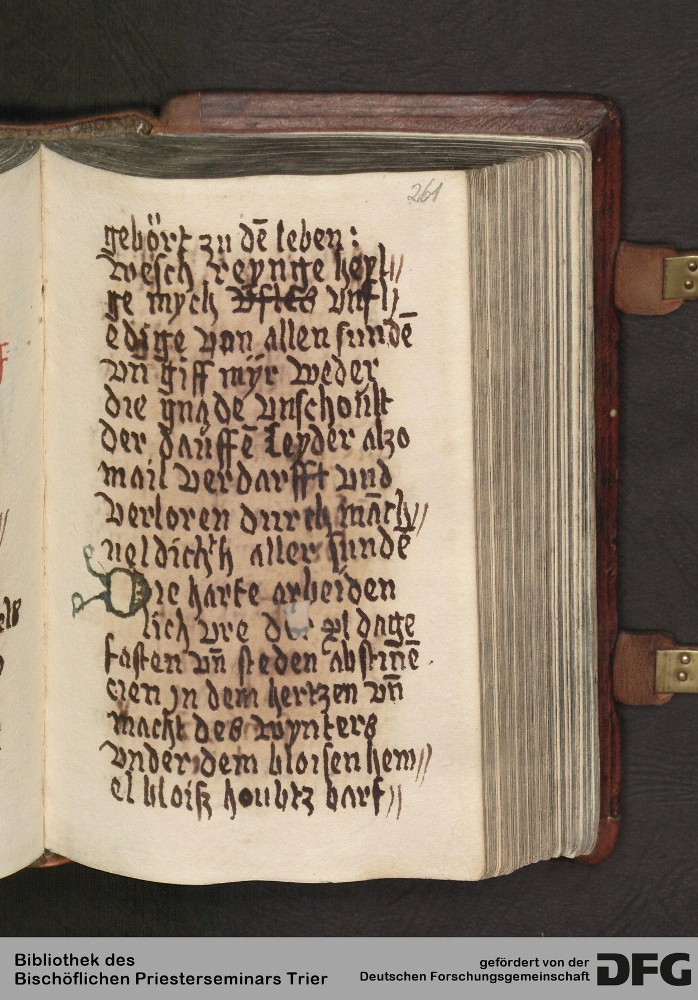 261
gebört zu dē leben:
wesch reynige heyl//
ge mych vnfl//
edige van allen sundē
vn giff myr weder
die gnade vnschoult
der dauffē leyder also
mail verdarfft vnd
verloren durch māch//
ueldich't aller sundē
Die harte arbeiden
lich vre der xl dage
fasten vn̄ steden abstinē
cien jn dem hertzen vn̄
macht des wynters
vnder dem bloisen hem//
el bloiß houbtz barf//
Bibliothek des
Bischöflichen Priesterseminars Trier
gefördert von der
Deutschen Forschungsgemeinschaft
DFG